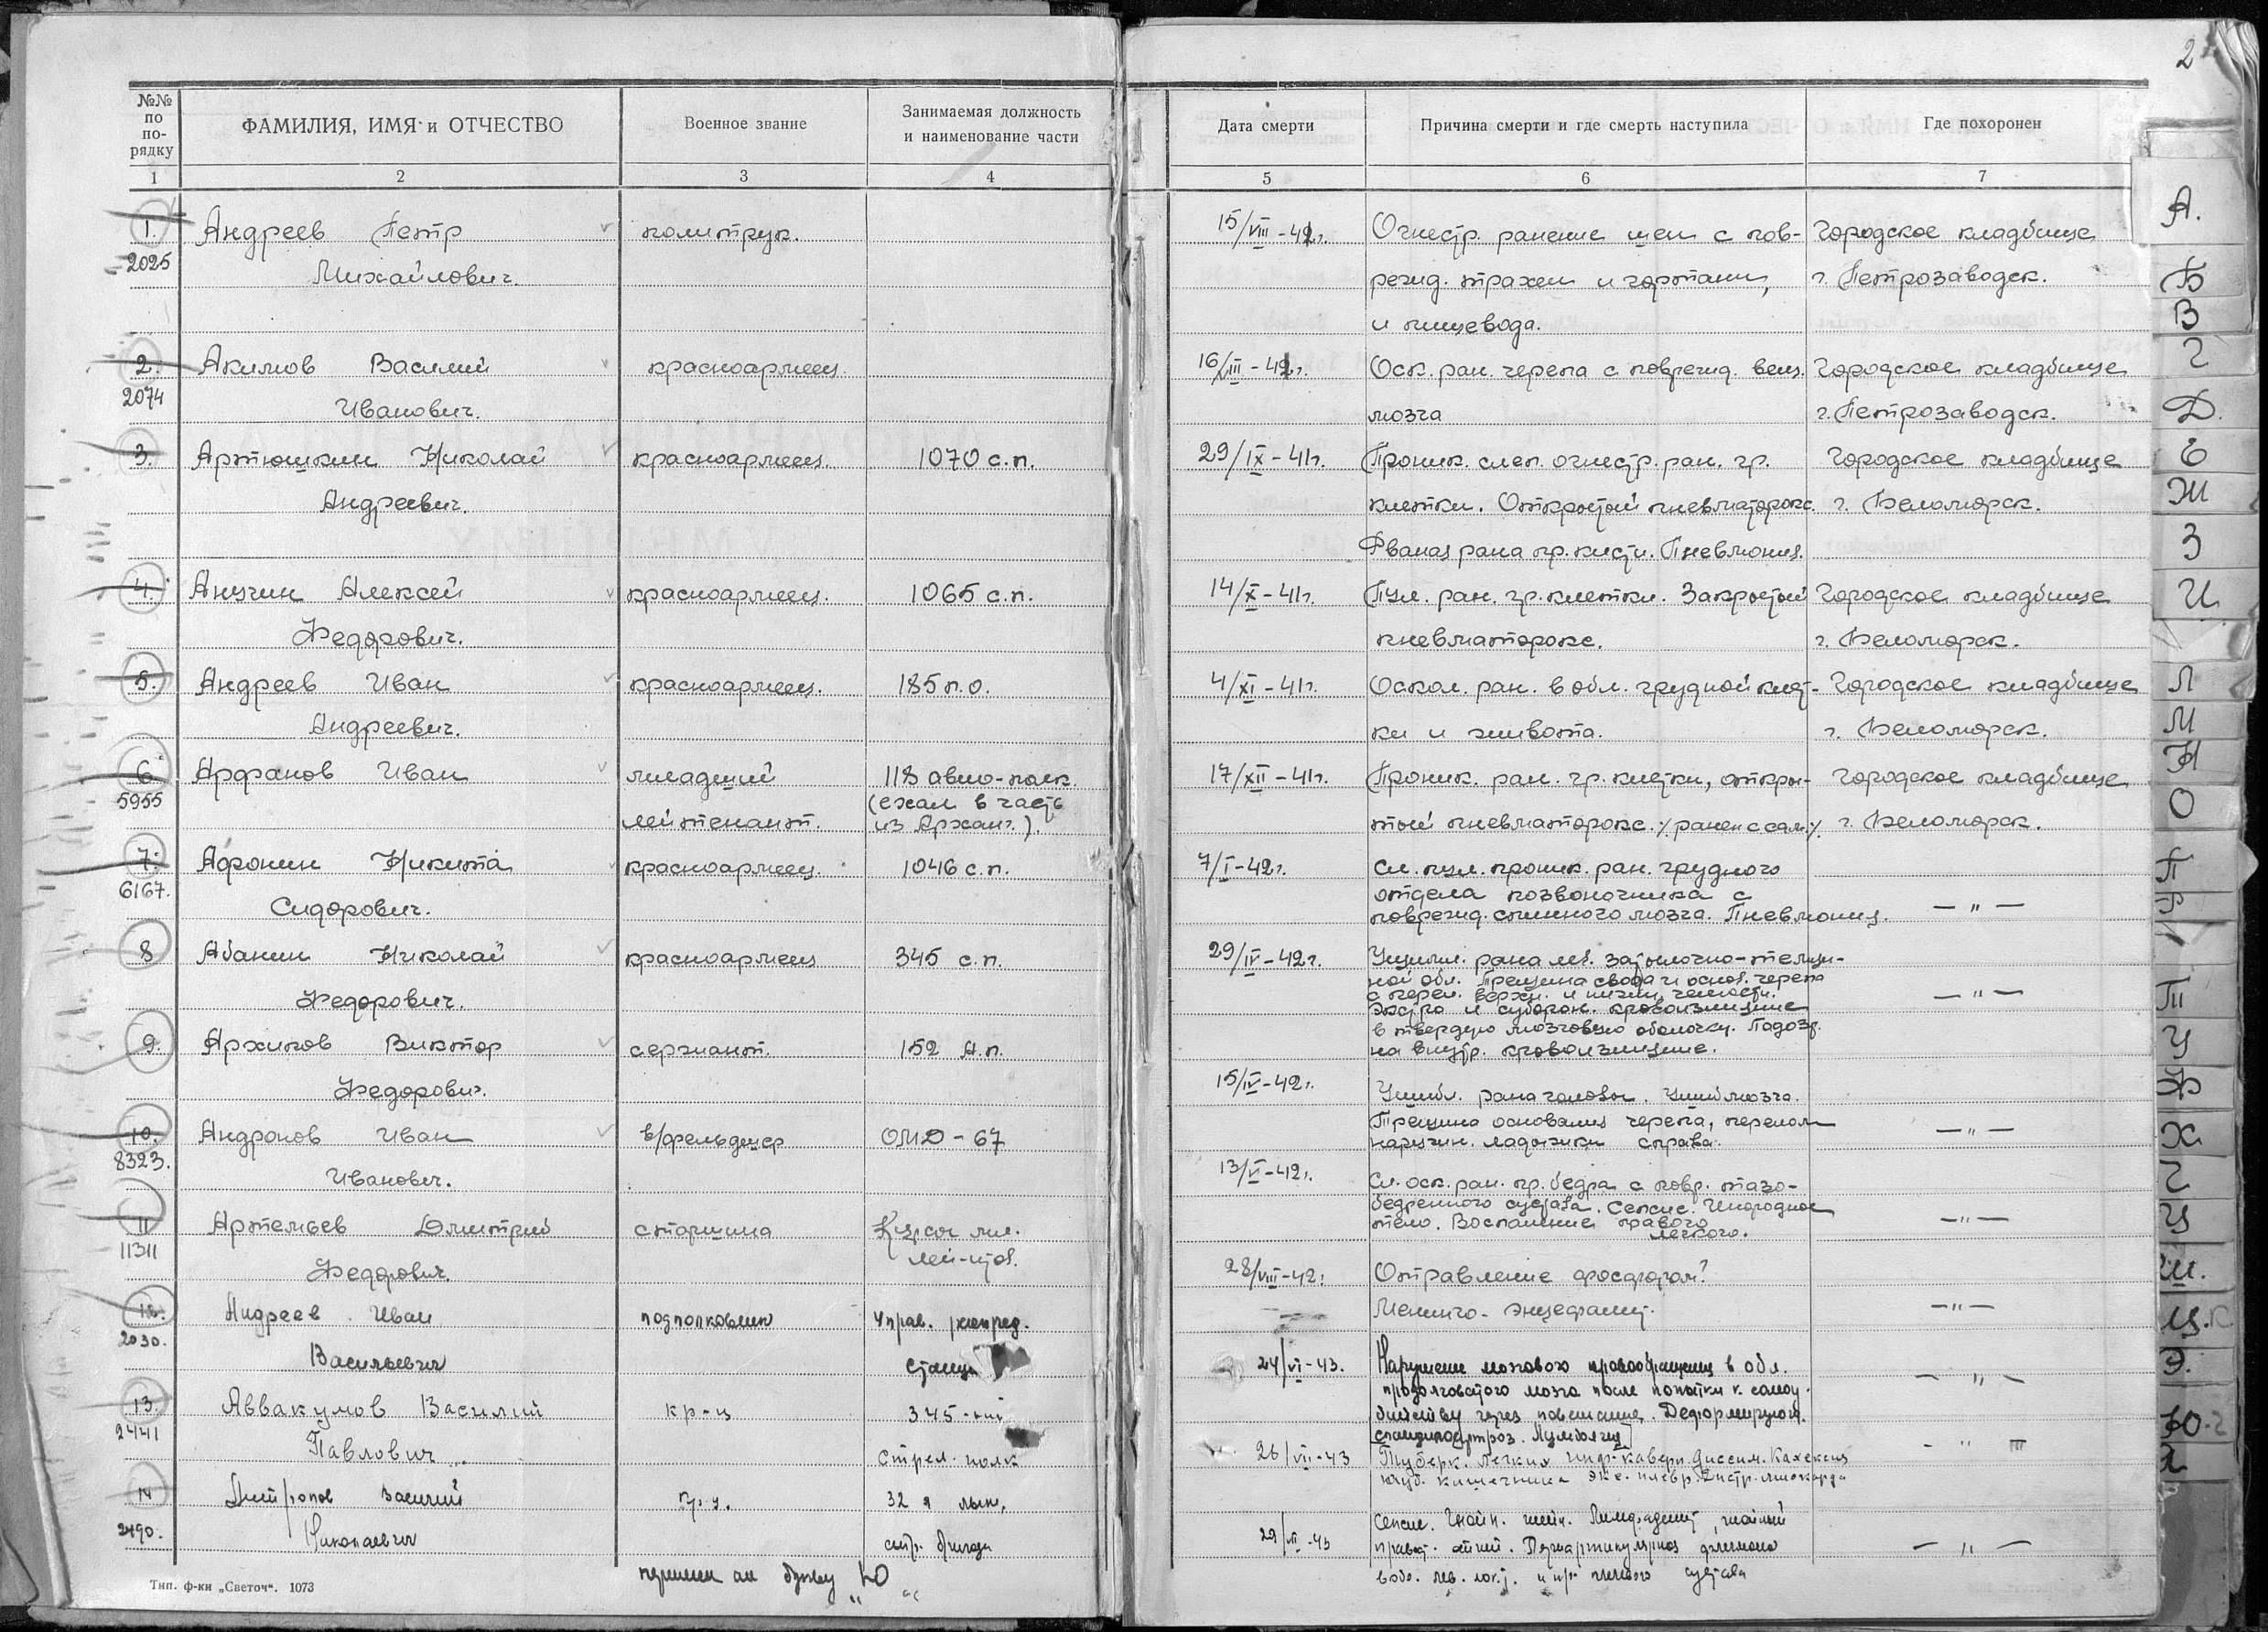 2
№№ по по- рядку
ФАМИЛИЯ, ИМЯ и ОТЧЕСТВО
Военное звание
Занимаемая должность и наименование части
Дата смерти
Причина смерти и где смерть наступила
Где похоронен
1 2 3 4 5 6 7
1. Андреев Петр политрук. 15/VIII-42г. Огнестр. ранение шеи с пов- Городское кладбище
2025 Михайлович. режд. трахеи и гортани, г. Петрозаводск.
и пищевода.
2. Акимов Василий красноармеец. 16/VIII-42г. Оск. ран. черепа с поврежд. вещ. Городское кладбище
2074 Иванович. мозга г. Петрозаводск.
3. Артюшкин Николай красноармеец. 1070 с.п. 29/IX-41г. Проник. слеп. огнестр. ран. гр. Городское кладбище
Андреевич. клетки. Открытый пневматоракс. г. Беломорск.
Рваная рана пр. кисти. Пневмония.
4. Анучин Алексей красноармеец. 1065 с.п. 14/X-41г. Пул. ран. гр. клетки. Закрытый Городское кладбище
Федорович. пневматоракс. г. Беломорск.
5. Андреев Иван красноармеец. 185 п.о. 4/XI-41г. Оскол. ран. в обл. грудной клет- Городское кладбище
Андреевич. ки и живота. г. Беломорск.
6. Арфанов Иван младший 118 авио-полк. 17/XII-41г. Проник. ран. гр. клетки, откры- Городское кладбище
5955 лейтенант. (ехал в часть из Арханг.). тый пневматоракс. /ранен с сам./ г. Беломорск.
7. Афонин Никита красноармеец. 1046 с.п. 7/I-42г. Сл. пул. проник. ран. грудного
6167. Сидорович. отдела позвоночника с
поврежд. спинного мозга. Пневмония. — " —
8 Абанин Николай красноармеец 345 с.п. 29/IV-42г. Ушибл. рана лев. затылочно-темен-
Федорович. ной обл. Трещина свода и основ. черепа
с перел. верхн. и нижн. челюсти. — " —
Экстра и субдоран. кровоизлияние
в твердую мозговую оболочку. Подозр.
на внутр. кровоизлияние.
9. Архипов Виктор сержант. 152 А.п.
Федорович. 15/IV-42г. Ушибл. рана головы. Ушиб мозга.
Трещина основания черепа, перелом
наружн. лодыжки справа. — " —
10. Андронов Иван в/фельдшер ОМД-67
8323. Иванович. 13/V-42г. Сл. оск. ран. пр. бедра с повр. тазо-
бедренного сустава. Сепсис. Инородное
тело. Воспаление правого легкого. — " —
11 Артемьев Дмитрий старшина Курсы мл. лей-тов.
11311 Федорович. 28/VIII-42г. Отравление фосфором?
Менинго-энцефалит. — " —
12. Андреев Иван подполковник Управ. распред.
2030. Васильевич 24/VI-43. Нарушение мозгового кровообращения в обл.
продолговатого мозга после попытки к самоу-
бийству через повешание. Деформирующ.
спондилоартроз. Люмбалгия — " —
13. Аввакумов Василий кр-ц 345-
2441 Павлович стрел. полк 26/VII-43 Туберк. легких инф.-каверн. диссем. Кахексия — " —
туб. кишечника экс. плевр. Дистр. миокарда
14 Василий кр-ц. 32 я лыж.
2490. Николаевич стр. бригада 29/VII-43 Сепсис. Гнойн. шейн. Лимфаденит, гнойный
правост. отит. Периартикулярная флегмона — " —
в обл. лев. локт. и пр. плечевого сустава
Тип. ф-ки „Светоч“. 1073
на букву „Ю“
А.
Б
В
Г
Д.
Е
Ж
З
И
Л
М
Н
О
П
Р
Т
У
Ф
Х
Ц
Ч
Ш.
Щ.
Э.
Ю
Я